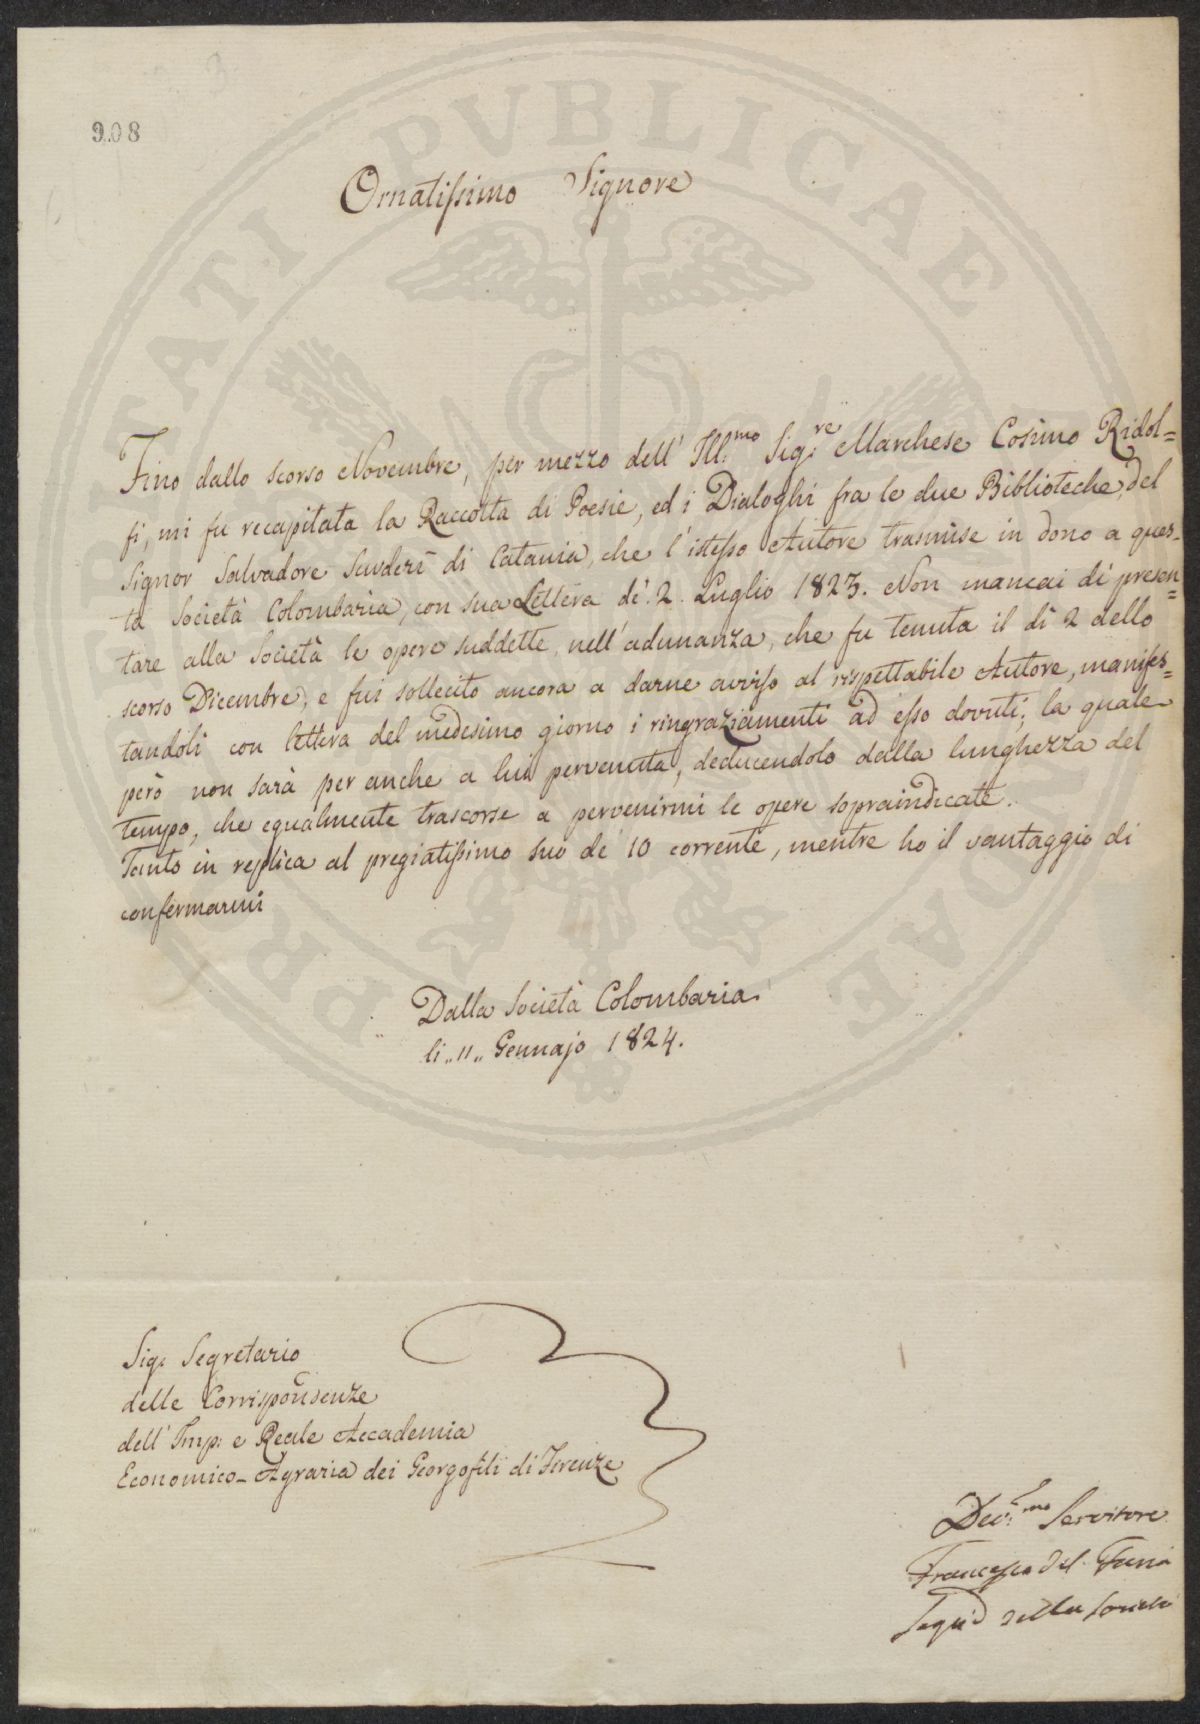 908
Ornatissimo Signore
Fino dallo scorso Novembre, per mezzo dell' Ill.mo Sig.re Marchese Cosimo Ridol=
fi, mi fu recapitata la Raccolta di Poesie, ed i Dialoghi fra le due Biblioteche, del
Signor Salvadore Scuderi di Catania, che l'istesso Autore trasmise in dono a ques-
ta Società Colombaria, con sua Lettera de' 2. Luglio 1823. Non mancai di presen=
tare alla Società le opere suddette, nell'adunanza, che fu tenuta il dì 2 dello
scorso Dicembre, e fui sollecito ancora a darne avviso al rispettabile Autore, manifes=
tandoli con lettera del medesimo giorno i ringraziamenti ad esso dovuti; la quale
però non sarà per anche a lui pervenuta, deducendolo dalla lunghezza del
tempo, che egualmente trascorse a pervenirmi le opere sopraindicate.
Tanto in replica al pregiatissimo suo de' 10 corrente, mentre ho il vantaggio di
confermarmi
Dalla Società Colombaria
li „11„ Gennajo 1824.
Sig. Segretario
delle Corrispondenze
dell' Imp: e Reale Accademia
Economico-Agraria dei Georgofili di Firenze
Dev.mo Servitore
Francesco Del Furia
Seg.rio della Società
PROSPERITATI PUBLICAE